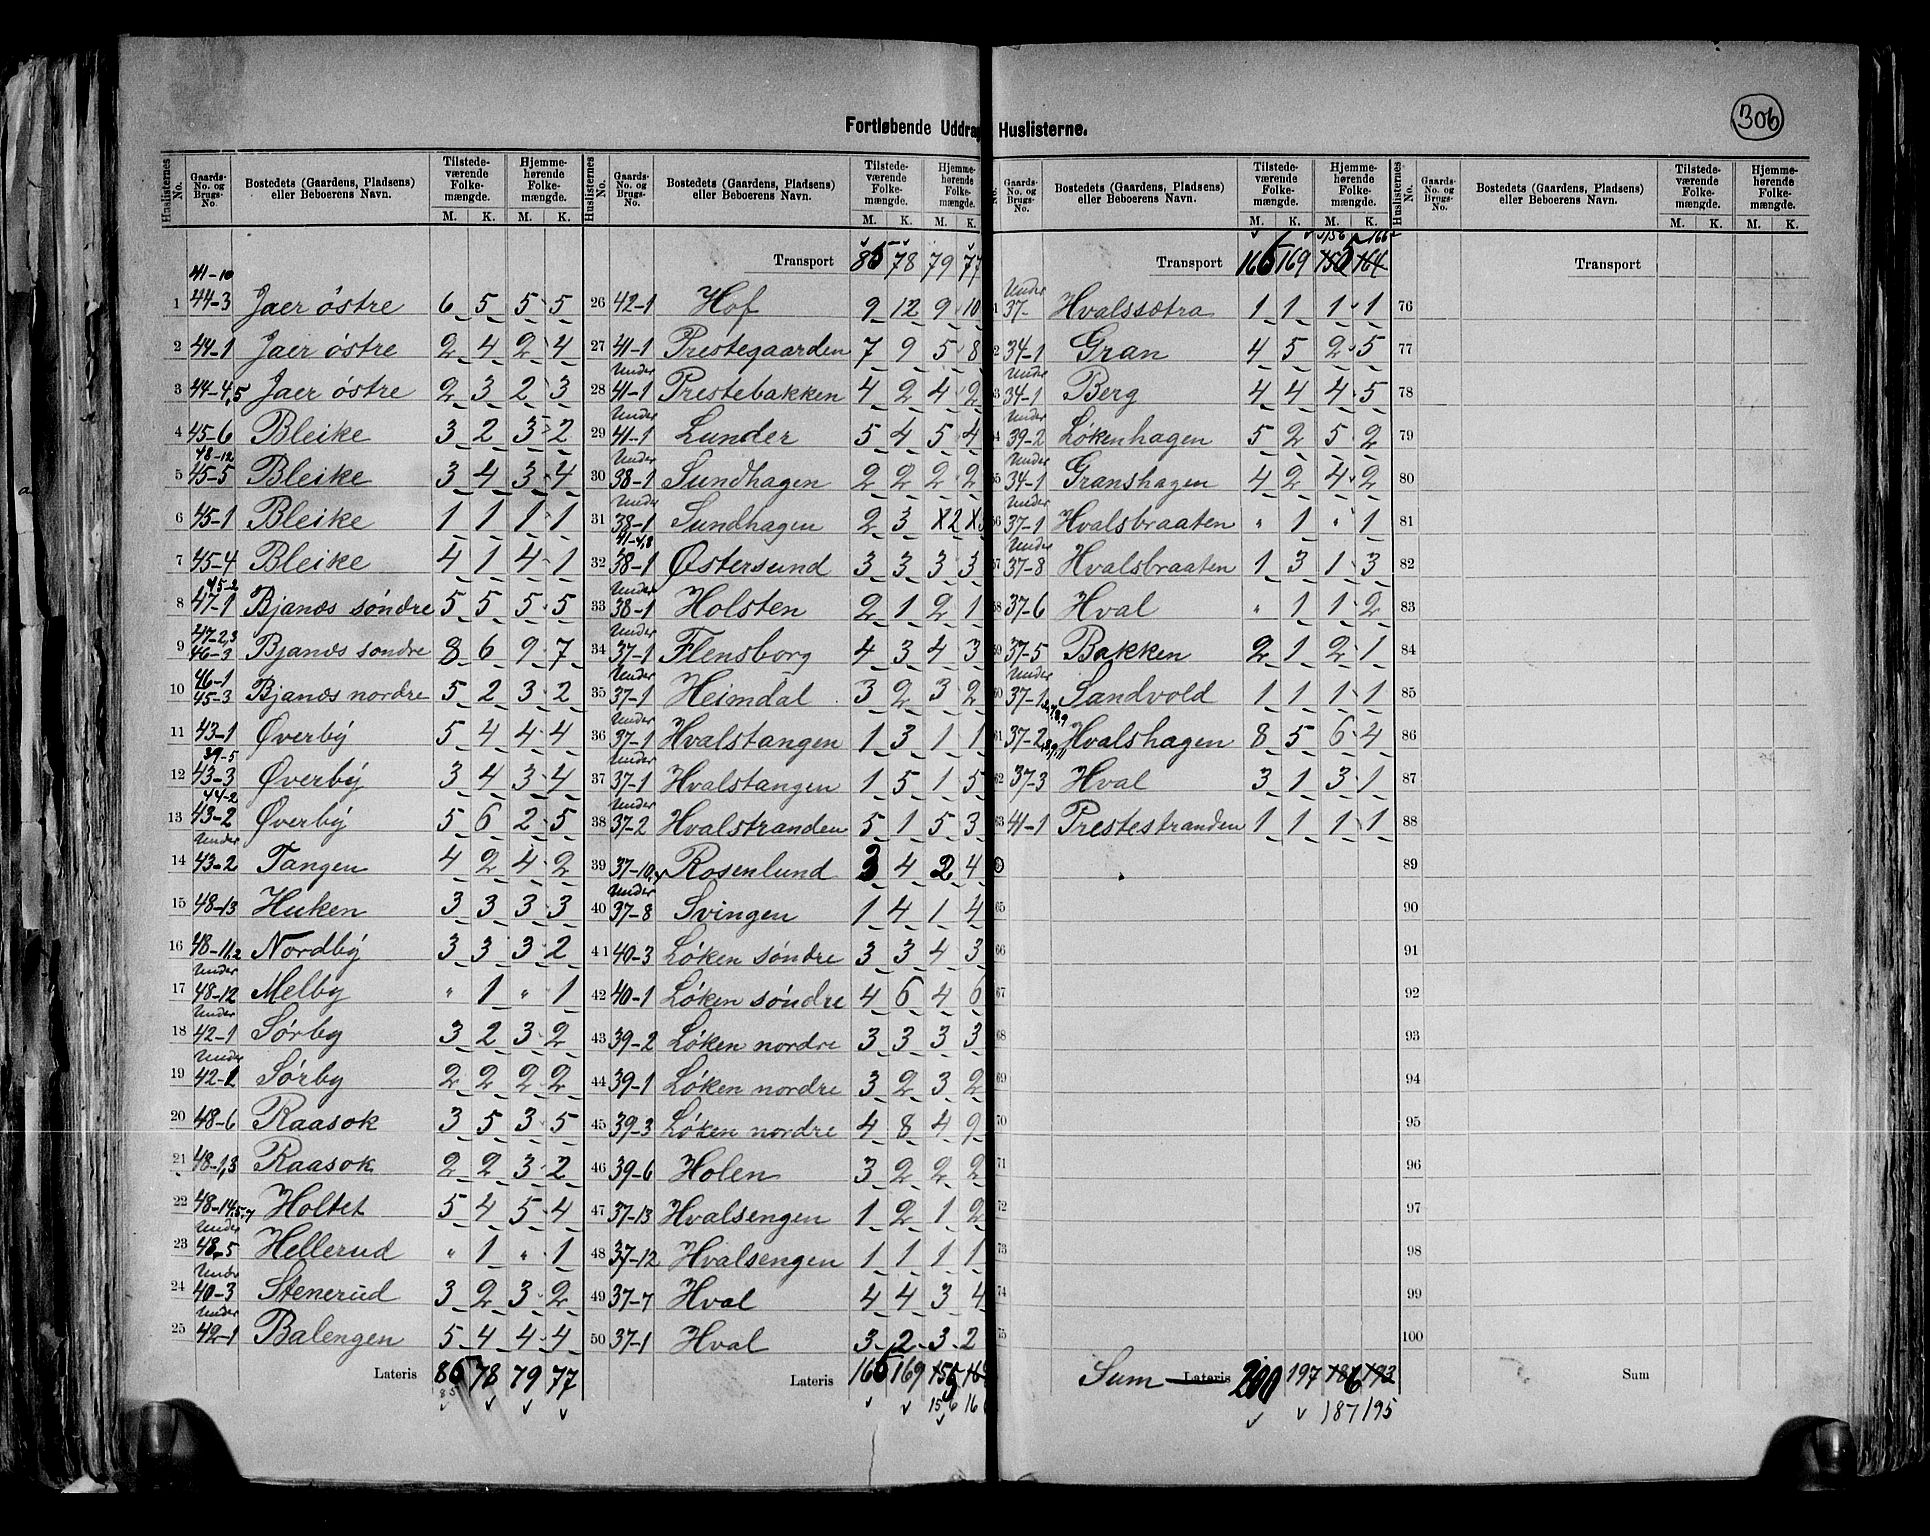 306
Fortløbende Uddra Huslisterne.
Huslisternes No. Gaards-No. og Brugs-No. Bostedets (Gaardens, Pladsens) eller Beboerens Navn. Tilstedeværende Folkemængde. M. K. Hjemmehørende Folkemængde. M. K.
1 41-10 44-3 Jaer østre 6 5 5 5
2 44-1 Jaer østre 2 4 2 4
3 44-4,5 Jaer østre 2 3 2 3
4 45-6 Bleike 3 2 3 2
5 48-12 45-5 Bleike 3 4 3 4
6 45-1 Bleike 1 1 1 1
7 45-4 Bleike 4 1 4 1
8 45-2 47-1 Bjanæs søndre 5 5 5 5
9 47-2,3 46-3 Bjanæs søndre 8 6 9 7
10 46-1 45-3 Bjanæs nordre 5 2 3 2
11 43-1 Øverby 5 4 4 4
12 39-5 43-3 Øverby 3 4 3 4
13 44-2 43-2 Øverby 5 6 2 5
14 Under 43-2 Tangen 4 2 4 2
15 48-13 Huken 3 3 3 3
16 48-11,2 Nordby 3 3 3 2
17 Under 48-12 Melby " 1 " 1
18 Under 42-1 Sørby 3 2 3 2
19 Under 42-1 Sørby 2 2 2 2
20 48-6 Raasok 3 5 3 5
21 48-1,3 Raasok 2 2 3 2
22 48-14,5,7 Holtet 5 4 5 4
23 Under 48-5 Hellerud " 1 " 1
24 Under 40-3 Stenerud 3 2 3 2
25 Under 42-1 Balengen 5 4 4 4
Lateris 85 78 79 77
85
Huslisternes No. Gaards-No. og Brugs-No. Bostedets (Gaardens, Pladsens) eller Beboerens Navn. Tilstedeværende Folkemængde. M. K. Hjemmehørende Folkemængde. M. K.
Transport 85 78 79 77
26 42-1 Hof 9 12 9 10
27 41-1 Prestegaarden 7 9 5 8
28 Under 41-1 Prestebakken 4 2 4 2
29 Under 41-1 Lunder 5 4 5 4
30 Under 38-1 Sundhagen 2 2 2 2
31 Under 38-1 Sundhagen 2 3 X2 X
32 41-4,8 38-1 Østersund 3 3 3 3
33 Under 38-1 Holsten 2 1 2 1
34 Under 37-1 Flensborg 4 3 4 3
35 Under 37-1 Heimdal 3 2 3 2
36 Under 37-1 Hvalstangen 1 3 1 1
37 Under 37-1 Hvalstangen 1 5 1 5
38 Under 37-2 Hvalstranden 5 1 5 3
39 37-10 Rosenlund 3 4 2 4
40 Under 37-8 Svingen 1 4 1 4
41 40-3 Løken søndre 3 3 4 3
42 40-1 Løken søndre 4 6 4 6
43 39-2 Løken nordre 3 3 3 3
44 39-1 Løken nordre 3 2 3 2
45 39-3 Løken nordre 4 8 4 9
46 39-6 Holen 3 2 2 2
47 37-13 Hvalsengen 1 2 1 2
48 37-12 Hvalsengen 1 1 1 1
49 37-7 Hval 4 4 3 4
50 37-1 Hval 3 2 3 2
Lateris 165 169 155 16
156 16
No. Gaards-No. og Brugs-No. Bostedets (Gaardens, Pladsens) eller Beboerens Navn. Tilstedeværende Folkemængde. M. K. Hjemmehørende Folkemængde. M. K.
156 166
Transport 165 169 155 164
1 Under 37- Hvalssætra 1 1 1 1
2 34-1 Gran 4 5 2 5
3 Under 34-1 Berg 4 4 4 5
4 Under 39-2 Løkenhagen 5 2 5 2
55 Under 34-1 Granshagen 4 2 4 2
56 Under 37-1 Hvalsbraaten " 1 " 1
57 Under 37-8 Hvalsbraaten 1 3 1 3
58 37-6 Hval " 1 1 2
59 37-5 Bakken 2 1 2 1
60 Under 37-1 Sandvold 1 1 1 1
61 37-2 Hvalshagen 8 5 6 4
62 37-3 Hval 3 1 3 1
63 41-1 Prestestranden 1 1 1 1
65
66
67
68
69
70
71
72
73
74
75
Sum Lateris 200 197 186 193
187 195
Huslisternes No. Gaards-No. og Brugs-No. Bostedets (Gaardens, Pladsens) eller Beboerens Navn. Tilstedeværende Folkemængde. M. K. Hjemmehørende Folkemængde. M. K.
Transport
76
77
78
79
80
81
82
83
84
85
86
87
88
89
90
91
92
93
94
95
96
97
98
99
100
Sum